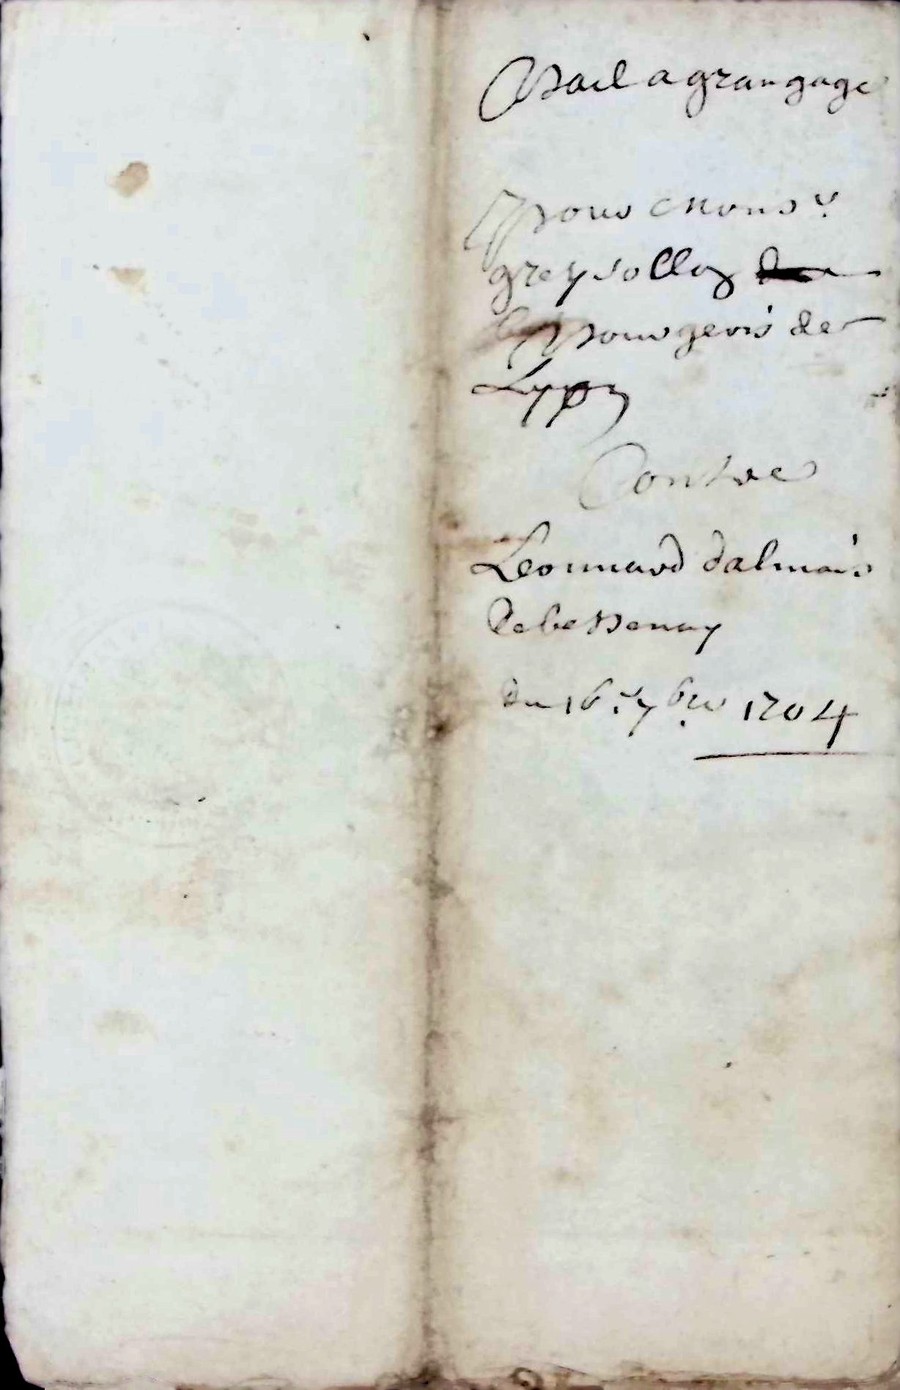 Bail a grangage
Pour Monsr
greysolloz
Bourgeois de
Lyon
Contre
Leonnard dalmais
de bessenay
du 16e 7bre 1704